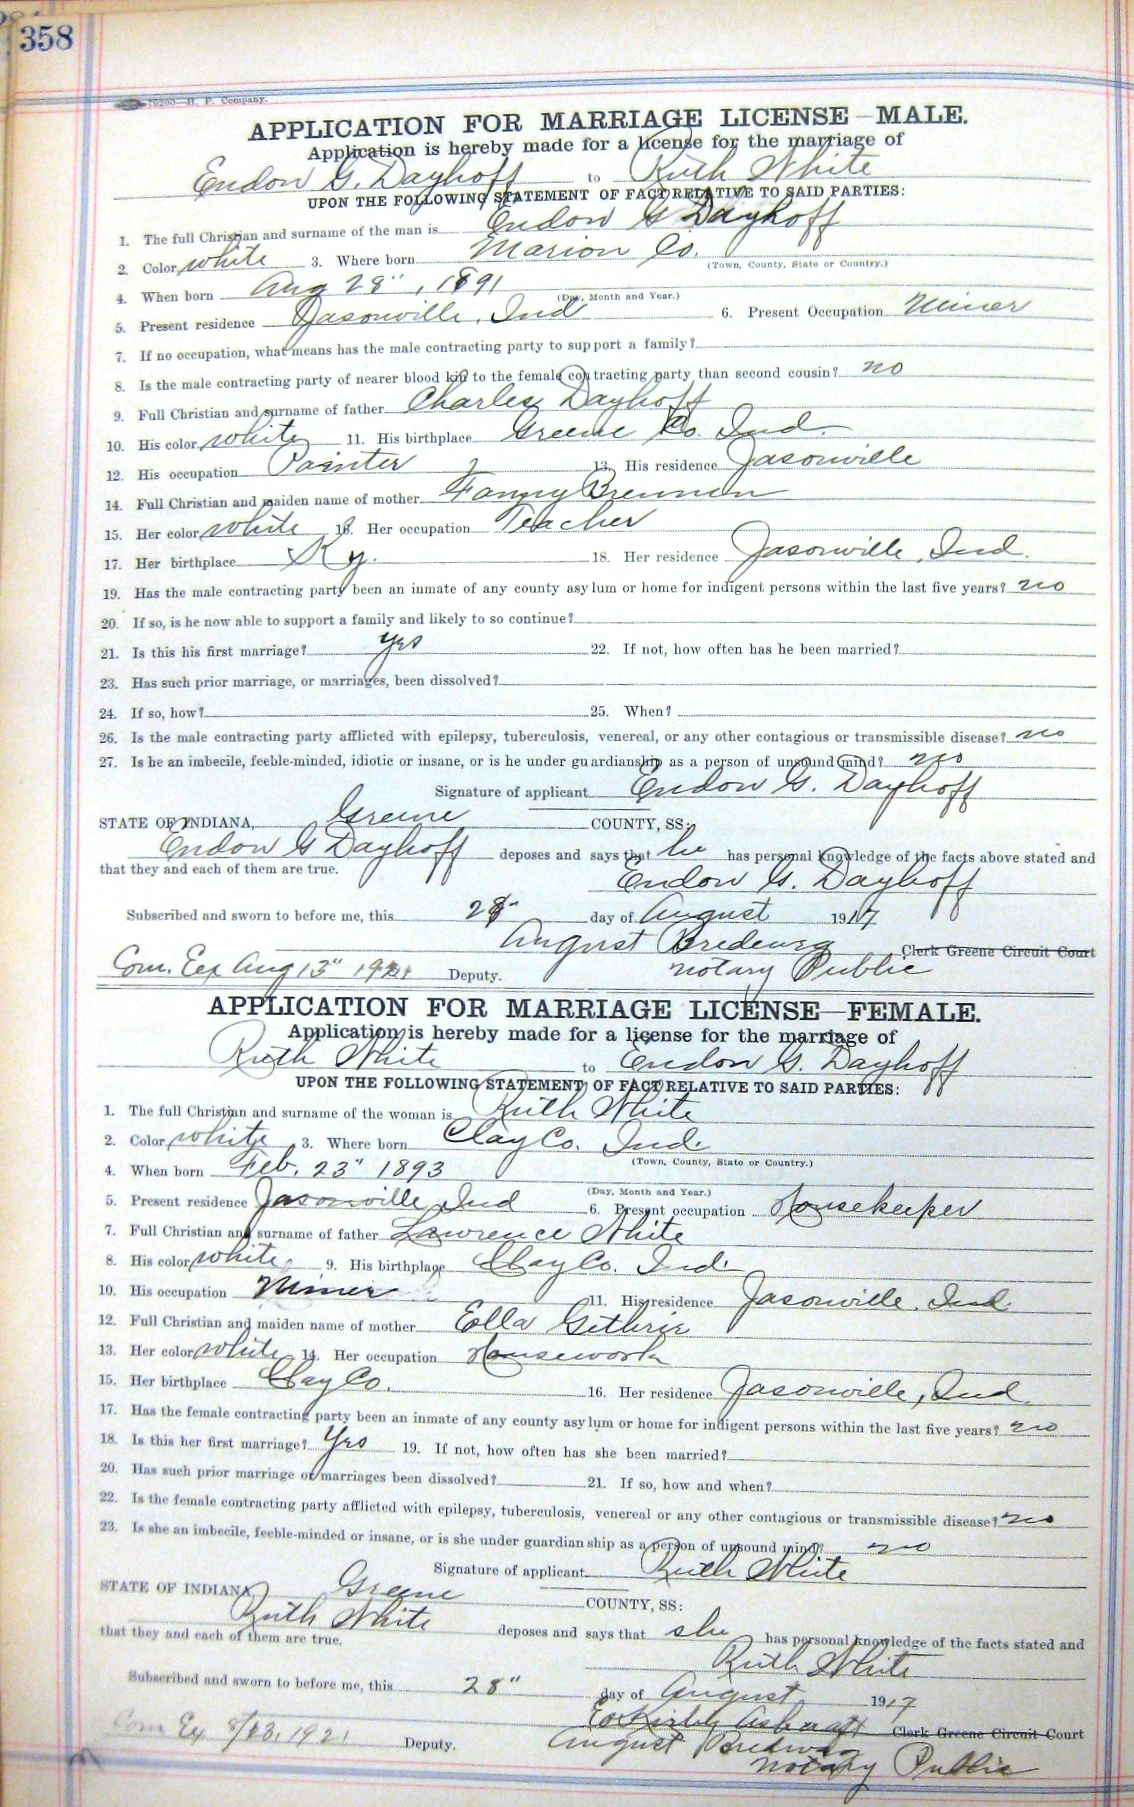 358
79200—H. P. Company.
APPLICATION FOR MARRIAGE LICENSE—MALE.
Application is hereby made for a license for the marriage of
Endon G. Dayhoff to Ruth White
UPON THE FOLLOWING STATEMENT OF FACT RELATIVE TO SAID PARTIES:
1. The full Christian and surname of the man is Endon G Dayhoff
2. Color white 3. Where born Marion Co.
(Town, County, State or Country.)
4. When born Aug 28", 1891
(Day, Month and Year.)
5. Present residence Jasonville, Ind 6. Present Occupation Miner
7. If no occupation, what means has the male contracting party to support a family?
8. Is the male contracting party of nearer blood kin to the female contracting party than second cousin? no
9. Full Christian and surname of father Charles Dayhoff
10. His color white 11. His birthplace Greene Co. Ind.
12. His occupation Painter 13. His residence Jasonville
14. Full Christian and maiden name of mother Fanny Brennen
15. Her color white 16. Her occupation Teacher
17. Her birthplace Ky. 18. Her residence Jasonville, Ind.
19. Has the male contracting party been an inmate of any county asylum or home for indigent persons within the last five years? no
20. If so, is he now able to support a family and likely to so continue?
21. Is this his first marriage? yes 22. If not, how often has he been married?
23. Has such prior marriage, or marriages, been dissolved?
24. If so, how? 25. When?
26. Is the male contracting party afflicted with epilepsy, tuberculosis, venereal, or any other contagious or transmissible disease? no
27. Is he an imbecile, feeble-minded, idiotic or insane, or is he under guardianship as a person of unsound mind? no
Signature of applicant Endon G. Dayhoff
STATE OF INDIANA, Greene COUNTY, SS:
Endon G Dayhoff deposes and says that he has personal knowledge of the facts above stated and
that they and each of them are true.
Endon G. Dayhoff
Subscribed and sworn to before me, this 28" day of August 1917
August Bredewig Clerk Greene Circuit Court
Com. Eex Aug 13" 1921 Deputy. Notary Public
APPLICATION FOR MARRIAGE LICENSE—FEMALE.
Application is hereby made for a license for the marriage of
Ruth White to Endon G. Dayhoff
UPON THE FOLLOWING STATEMENT OF FACT RELATIVE TO SAID PARTIES:
1. The full Christian and surname of the woman is Ruth White
2. Color white 3. Where born Clay Co. Ind.
(Town, County, State or Country.)
4. When born Feb. 23" 1893
(Day, Month and Year.)
5. Present residence Jasonville Ind 6. Present occupation Housekeeper
7. Full Christian and surname of father Lawrence White
8. His color white 9. His birthplace Clay Co. Ind.
10. His occupation Miner 11. His residence Jasonville, Ind
12. Full Christian and maiden name of mother Eolla Guthrie
13. Her color white 14. Her occupation Housework
15. Her birthplace Clay Co. 16. Her residence Jasonville, Ind.
17. Has the female contracting party been an inmate of any county asylum or home for indigent persons within the last five years? no
18. Is this her first marriage? Yes 19. If not, how often has she been married?
20. Has such prior marriage or marriages been dissolved? 21. If so, how and when?
22. Is the female contracting party afflicted with epilepsy, tuberculosis, venereal or any other contagious or transmissible disease? no
23. Is she an imbecile, feeble-minded or insane, or is she under guardianship as a person of unsound mind? no
Signature of applicant Ruth White
STATE OF INDIANA Greene COUNTY, SS:
Ruth White deposes and says that she has personal knowledge of the facts stated and
that they and each of them are true.
Ruth White
Subscribed and sworn to before me, this 28" day of August 1917
Ashcraft Clerk Greene Circuit Court
Com Ex 8/13, 1921 Deputy. August Bredewig
Notary Public